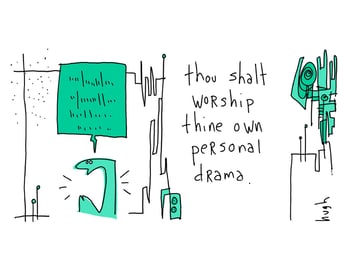 thou shalt
worship
thine own
personal
drama.
hugh